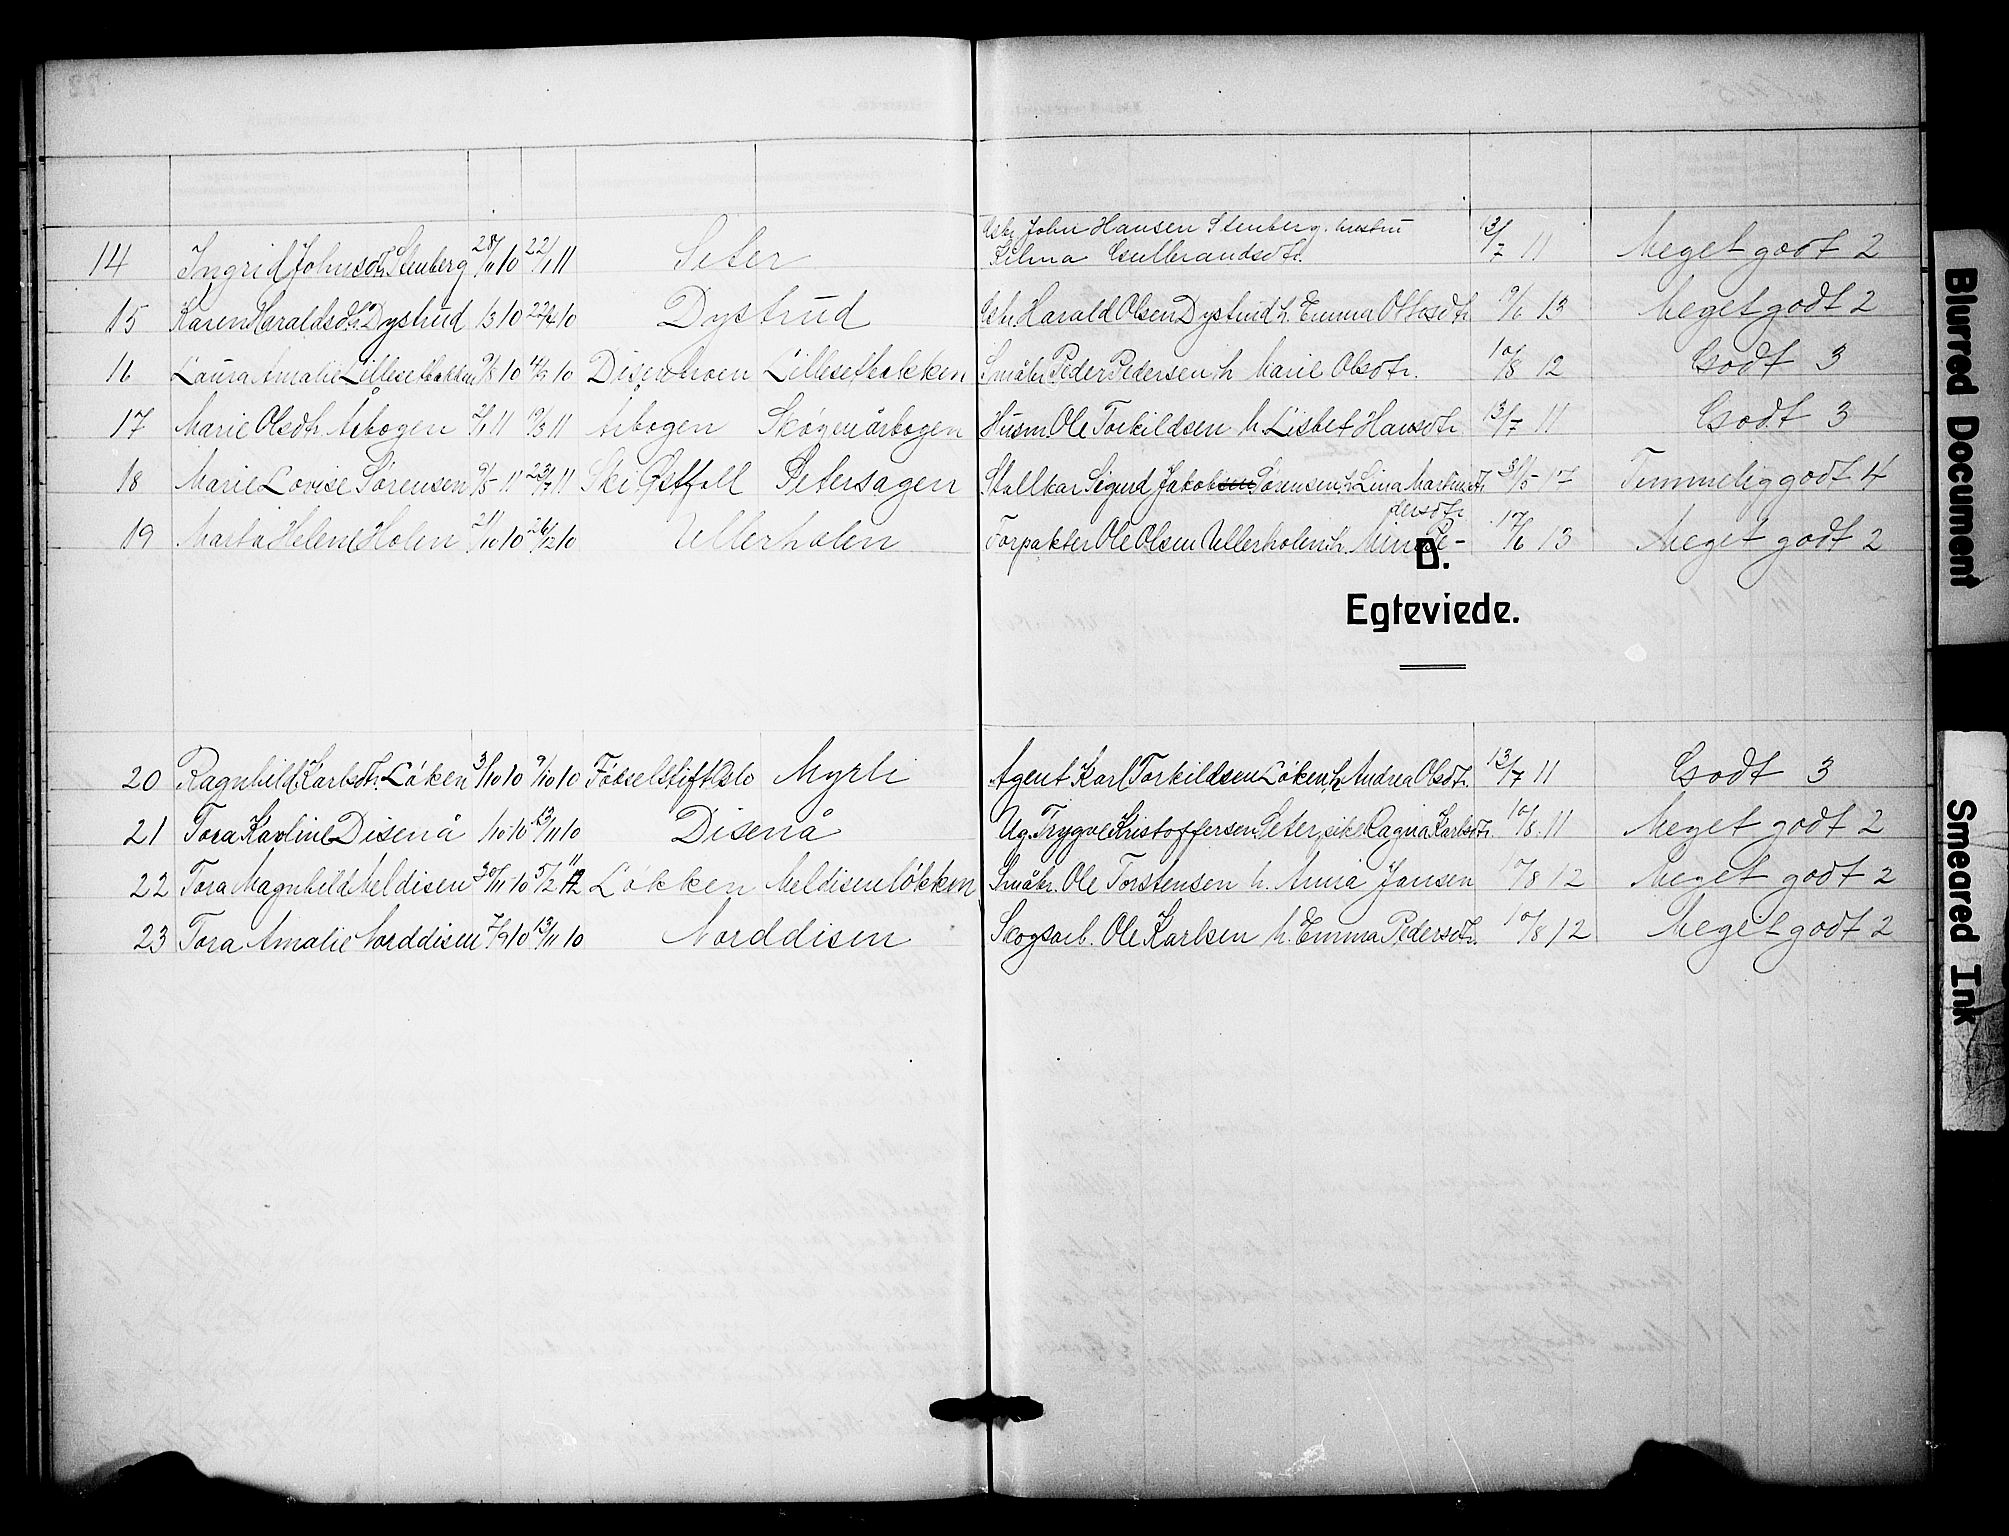 14 Ingrid Johnsdtr. Stenberg 28/11 10 22/1 11 Seter Gbr. John Hansen Stenberg. hustru
Hilma Gulbrandsdtr. 13/7 11 Meget godt 2
15 Karen Haraldsdtr Dystrud 1/3 10 22/4 10 Dystrud Gbr. Harald Olsen Dystrud h. Emma Ottosdtr. 9/6 13 Meget godt 2
16 Laura Amalie Lillesetbakken 10 10 Disenhoen Lillesetbakken Småbr. Peder Pedersen h Marie Olsdtr. 10/8 12 Godt 3
17 Marie Olsdtr Årbogen 11 19/3 11 Årbogen Skogenårbogen Husm. Ole Torkildsen h. Lisbet Hansdtr. 13/7 11 Godt 3
18 Marie Lovise Sørensen 9/5 11 23/7 11 Ski Østfoll Petersagen Stallkar Sigurd Jakobsen Sørensen h. Lina Martinsdtr. 31/5 17 Temmelig godt 4
19 Marta Helene Holen 21/10 10 26/12 10 Ullerholen Forpakter Ole Olsen Ullerholen h. Minna Pe-
dersdtr 17/6 13 Meget godt 2
D.
Egteviede.
20 Ragnhild Karlsdtr. Løken 3/10 10 9/10 10 Fødselstift Oslo Myrli Agent Karl Torkildsen Løken h. Andrea Olsdtr. 13/7 11 Godt 3
21 Tora Karline Disenå 1/10 10 13/11 10 Disenå Ug. Trygve Kristoffersen Seter, pike Ragna Karlsdtr. 10/8 11 Meget godt 2
22 Tora Magnhild Meldisen 30/11 10 5/2 11 Løkken Meldisenløkken Småbr. Ole Torstensen h. Anna Jansen 17/8 12 Meget godt 2
23 Tora Amalie Norddisen 7/9 10 13/11 10 Norddisen Skogsarb. Ole Karlsen h. Emma Pedersdtr. 10/8 12 Meget godt 2
Blurred Document
Smeared Ink